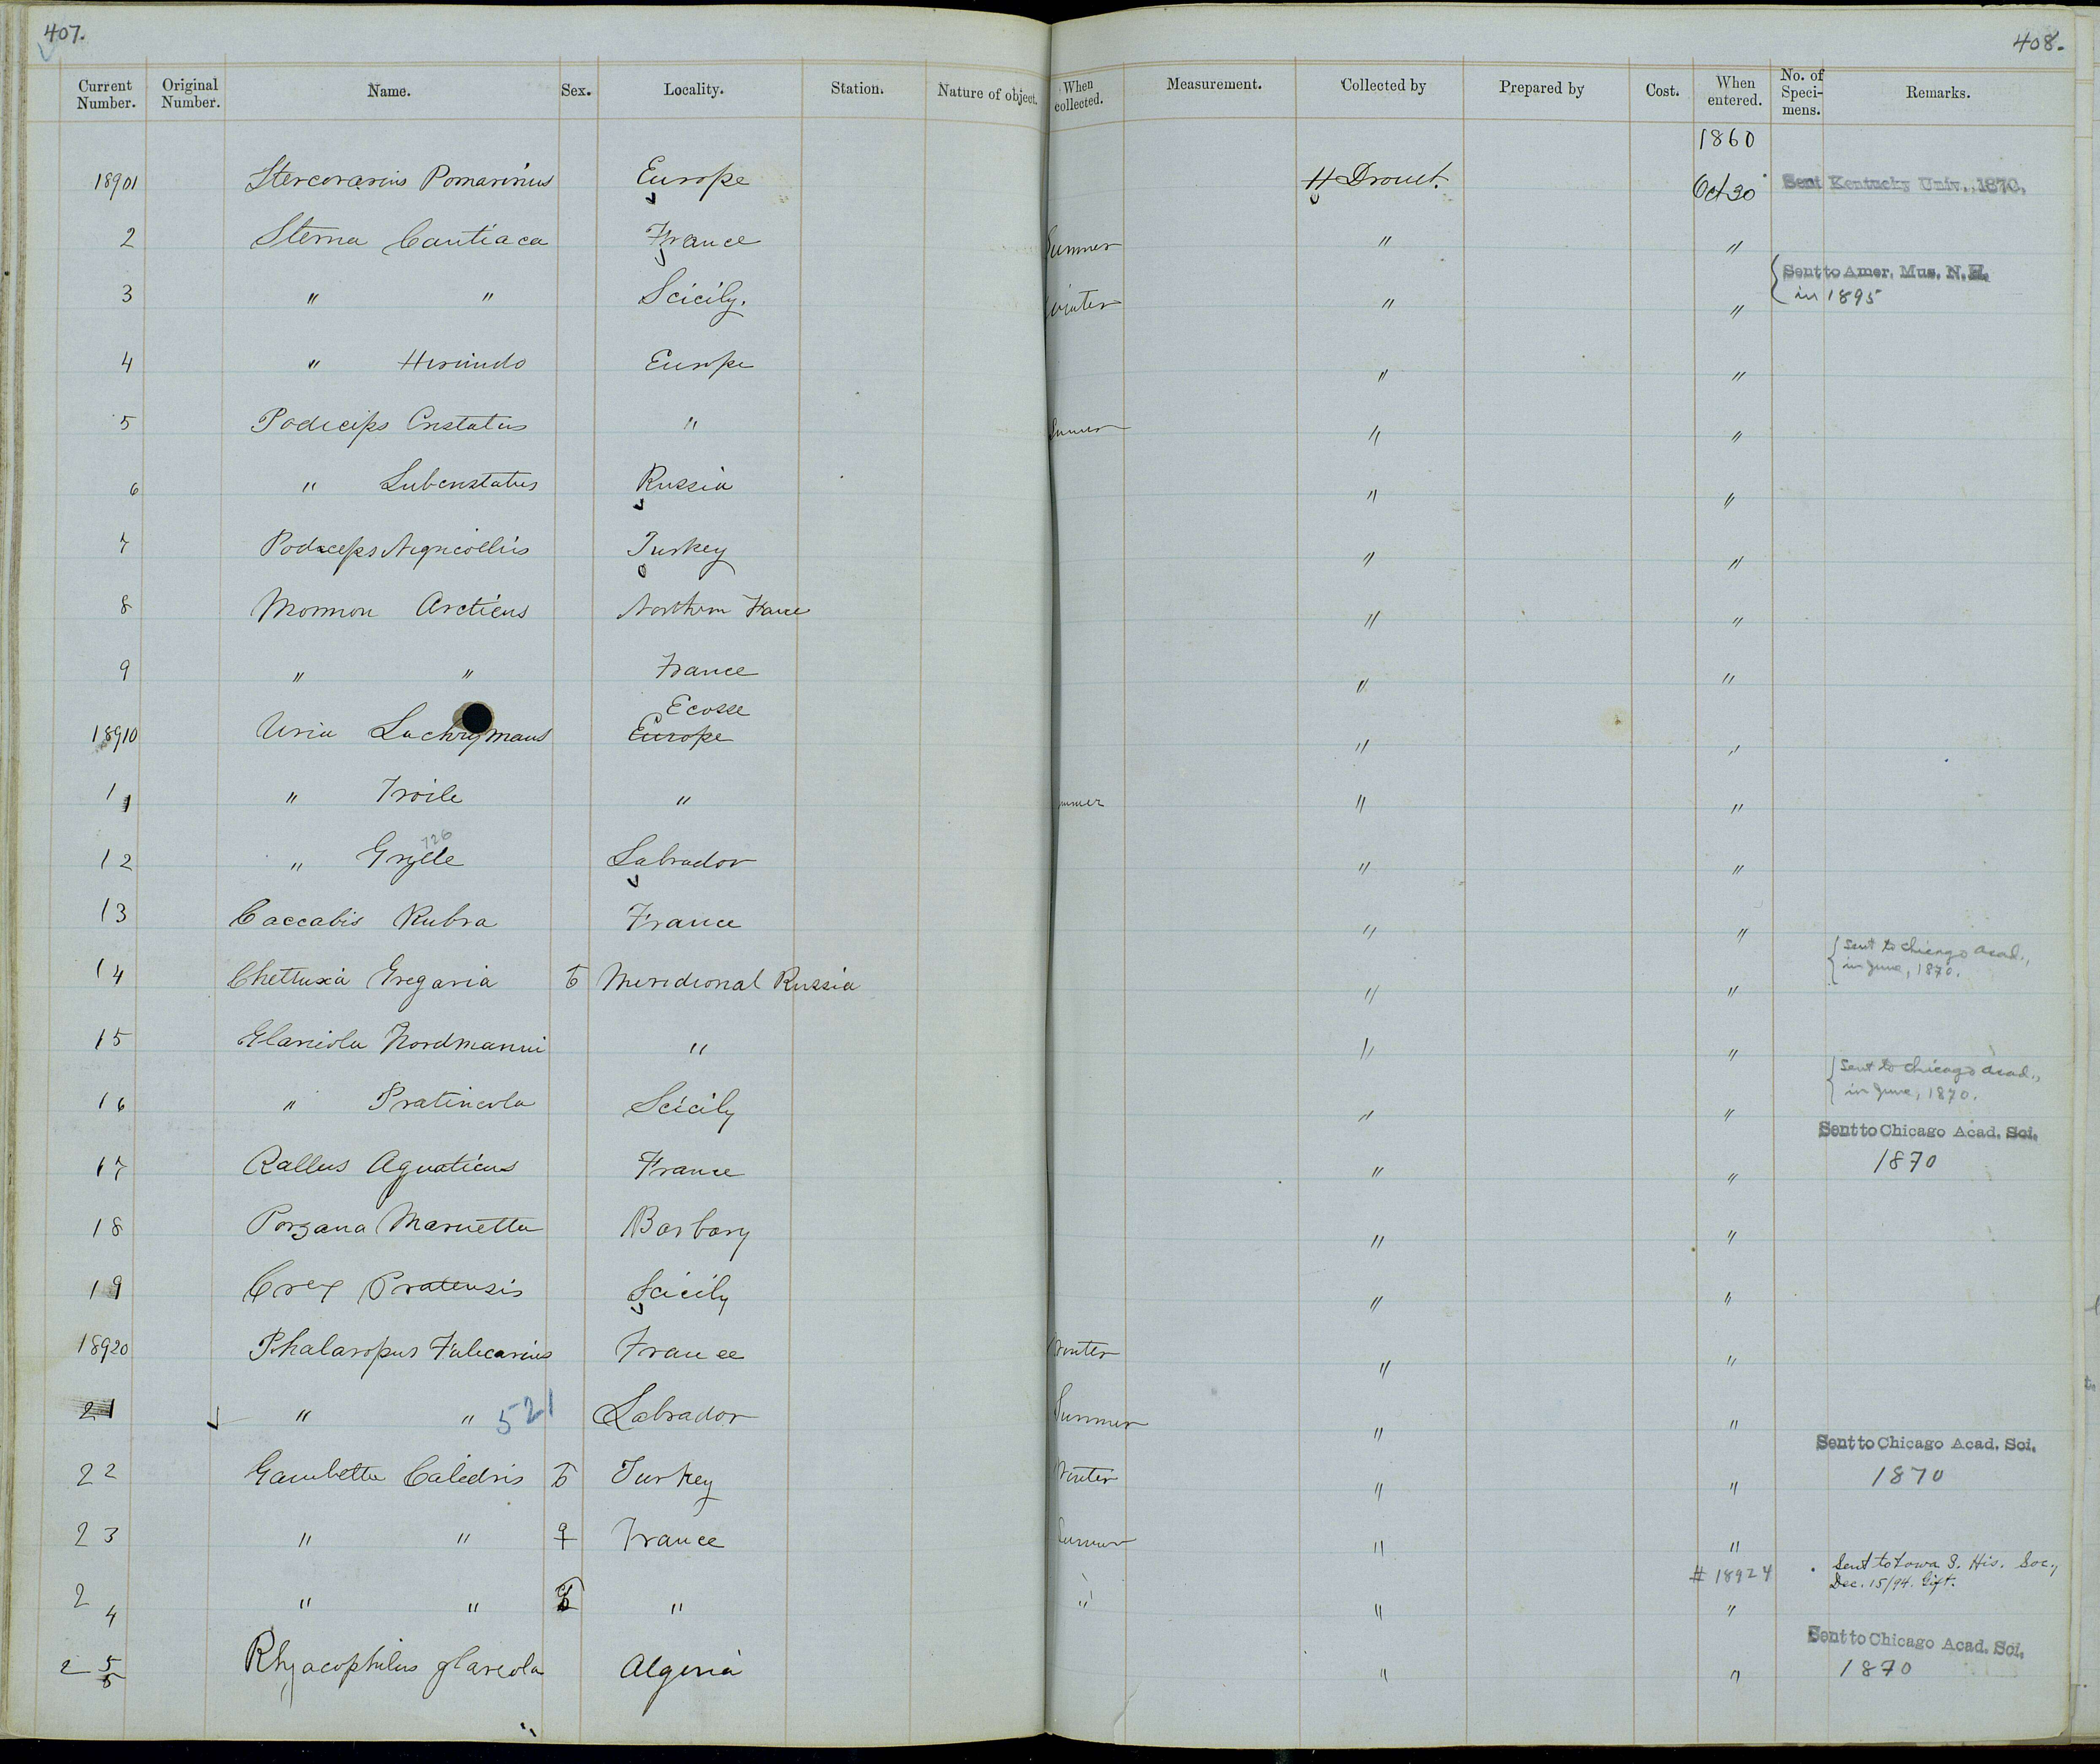 407.
408.
Current Number. Original Number. Name. Sex. Locality. Station. Nature of object. When collected. Measurement. Collected by Prepared by Cost. When entered. No. of Speci-mens. Remarks.
1860
18901 Stercorarius Pomarinus Europe H Drouet. Oct 30 Sent Kentucky Univ., 1870,
2 Sterna Cantiaca France Summer " "
3 " " Scicily. Winter " " Sent to Amer. Mus. N. H.
in 1895
4 " Hirundo Europe " "
5 Podiceps Cristatus " Summer " "
6 " Subcristatus Russia " "
7 Podiceps Nigricollis Turkey " "
8 Mormon Arcticus Northern France " "
9 " " France " "
Ecosse
18910 Uria Lachrymans Europe " "
11 " Troile " ummer " "
726
12 " Grylle Labrador " "
13 Caccabis Rubra France " "
14 Chettusia Gregaria ♂ Meridional Russia " " Sent to Chicago Acad.,
in June, 1870.
15 Glareola Nordmanni " " "
16 " Pratincola Scicily " " Sent to Chicago Acad.,
in June, 1870.
17 Rallus Aquaticus France " " Sent to Chicago Acad. Sci.
1870
18 Porzana Maruetta Barbary " "
19 Crex Pratensis Scicily " "
18920 Phalaropus Fulicarius France Winter " "
21 " " 521 Labrador Summer " "
22 Gambetta Calidris ♂ Turkey Winter " " Sent to Chicago Acad. Sci.
1870
23 " " ♀ France Summer " "
# 18924 Sent to Iowa S. His. Soc.,
Dec. 15/94. Gift.
24 " " " " " "
25 Rhyacophilus glareola Algeria " " Sent to Chicago Acad. Sci.
1870